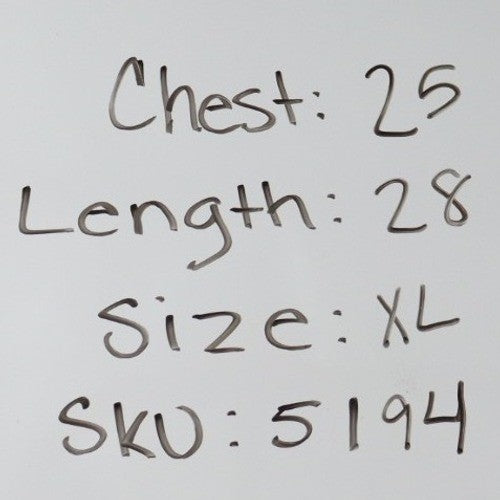 Chest: 25
Length: 28
Size: XL
SKU: 5194